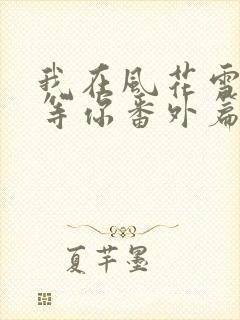 我在風花雪
等你番外篇
夏芊墨